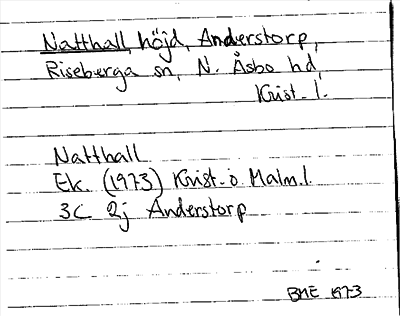 Natthall, höjd, Anderstorp,
Riseberga sn, N. Åsbo hd,
Krist. l.
Natthall
Ek. (1973) Krist. o Malm. l.
3C 2j Anderstorp
BME 1973